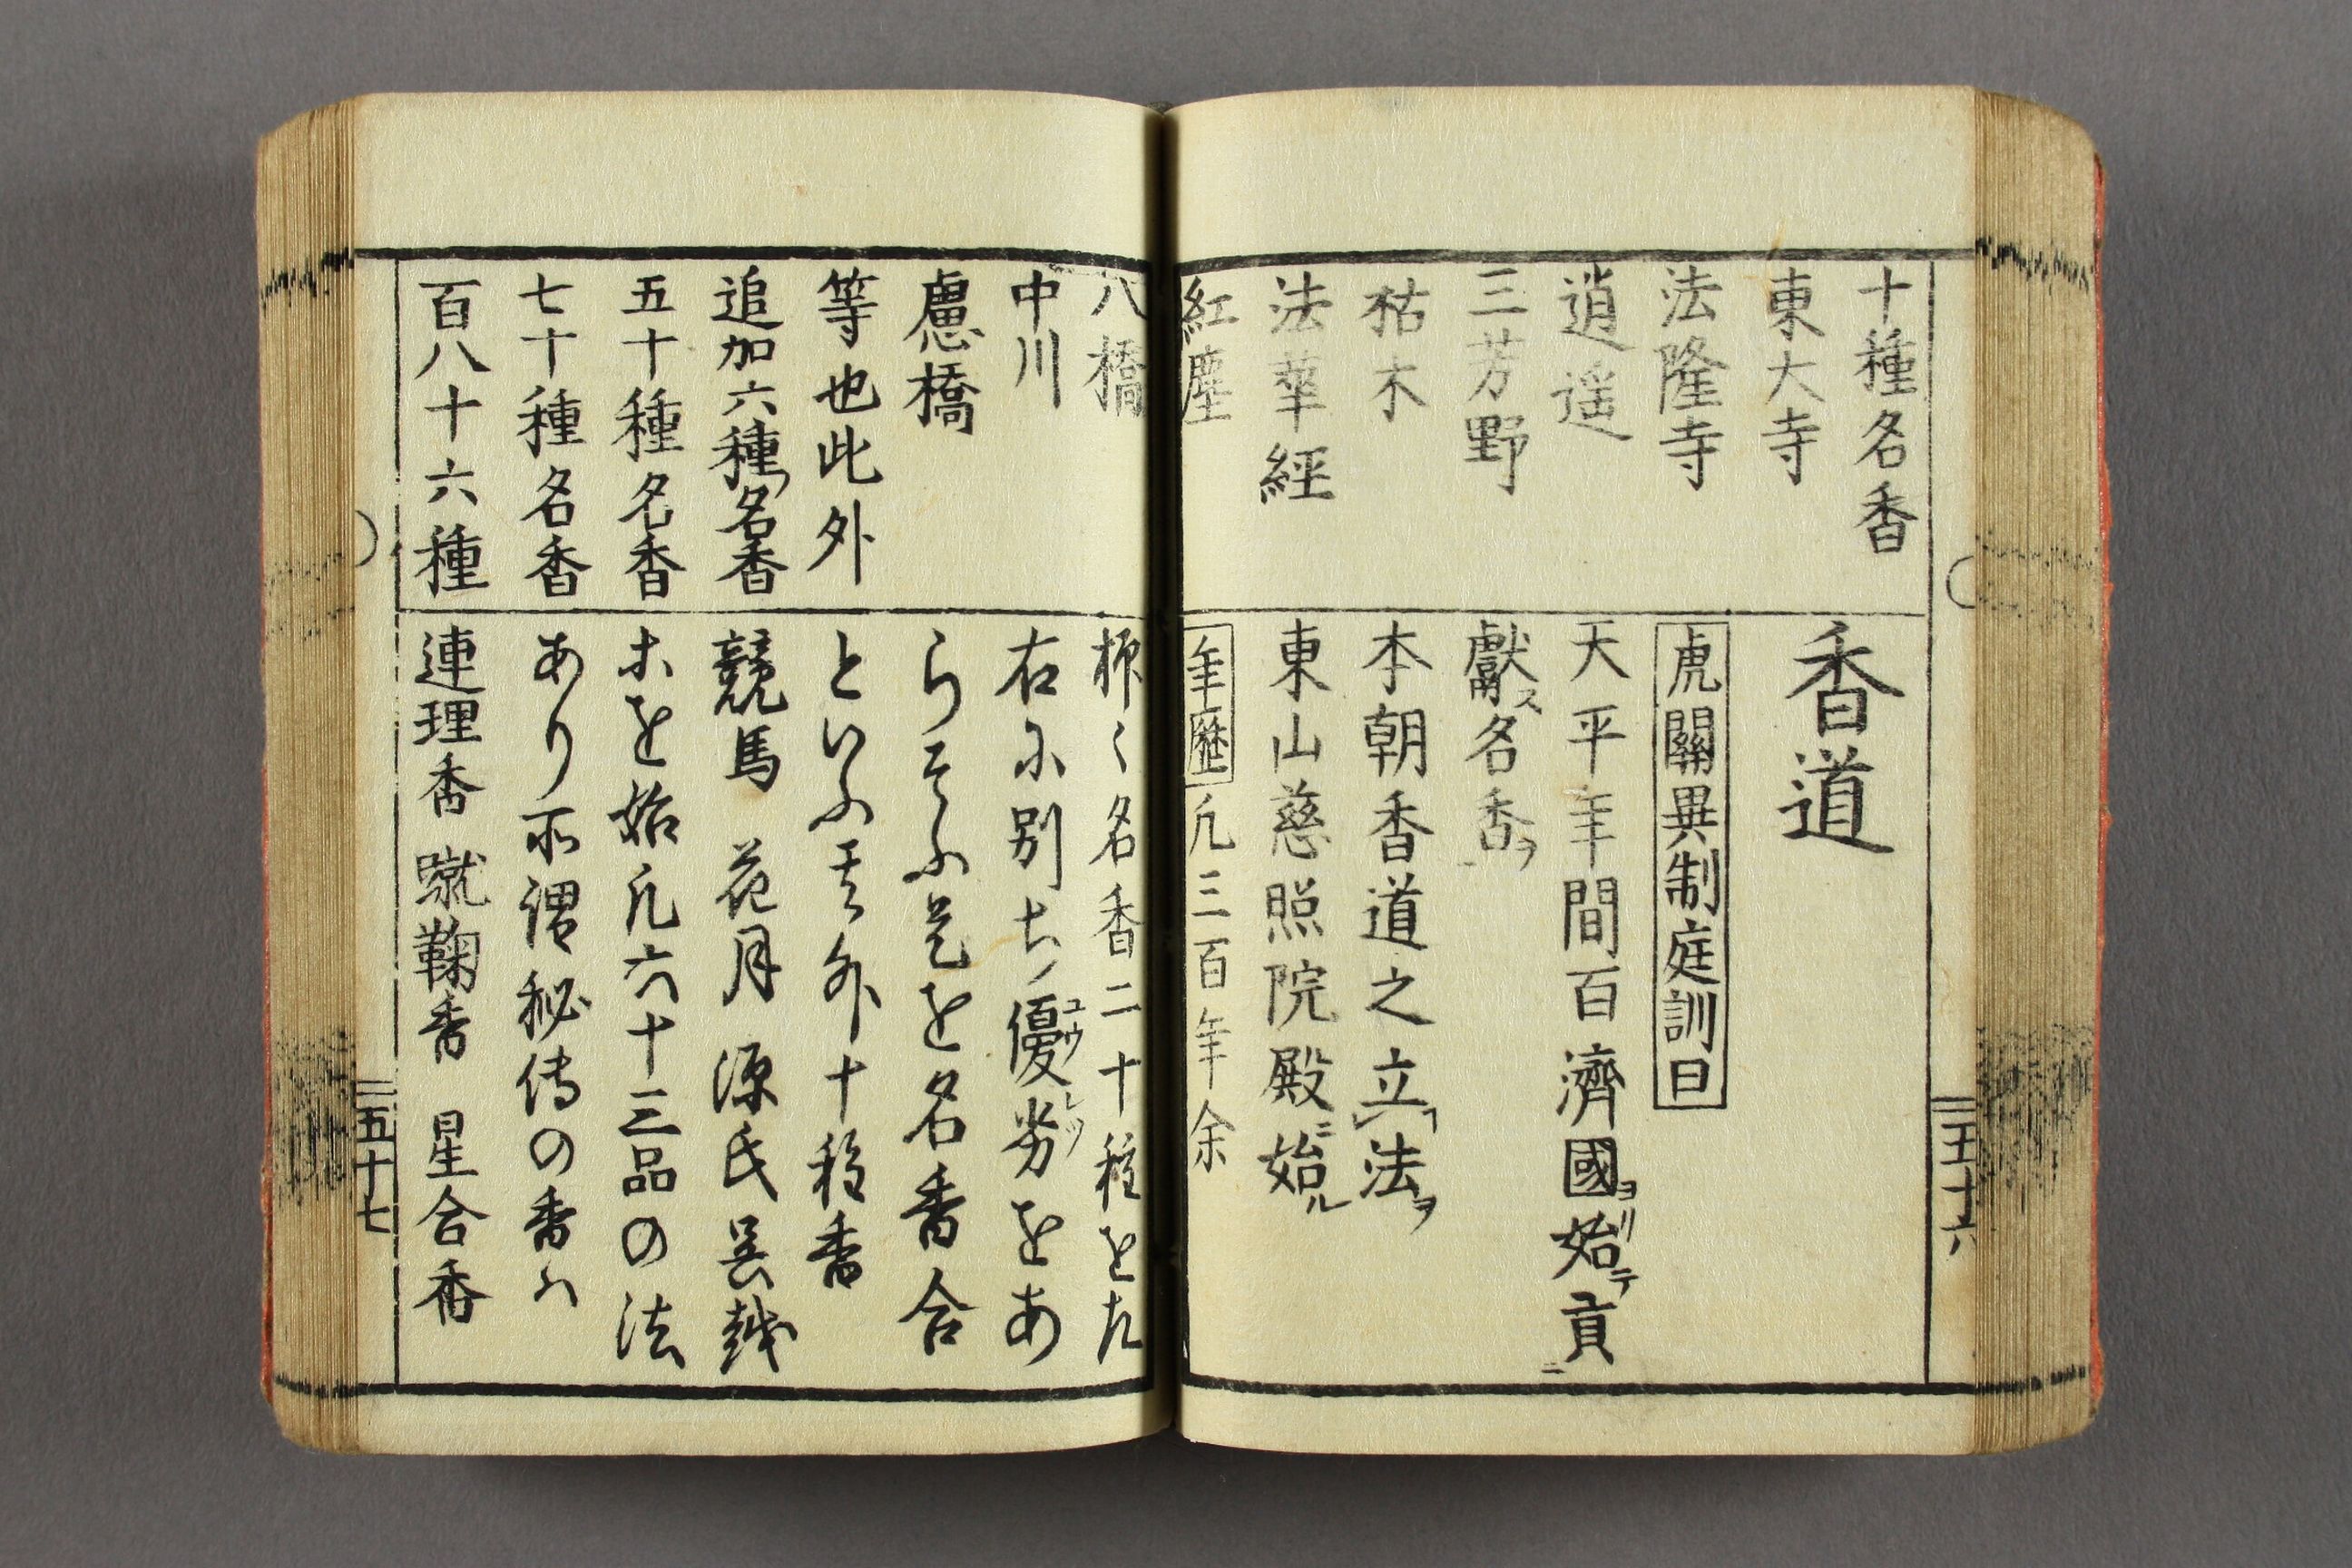 十種名香
東大寺
法隆寺
逍遥
三芳野
枯木
法華經
紅塵
香道
虎關異制庭訓曰
天平年間百濟國ヨリ始テ貢
獻ス名香ヲ
本朝香道之立法ヲ
東山慈照院殿ニ始ル
年歷凡三百年余
三五十六
八橋
中川
盧橘
等也此外
追加六種ノ名香
五十種名香
七十種名香
百八十六種
抑々名香二十種を左
右に別ち優劣をあ
ユウレツ
らそふ是を名香合
といふ其外十種香
競馬 花月 源氏 呉越
等を始凡六十三品の法
あり所謂秘傳の香ハ
連理香 蹴鞠香 星合香
三五十七